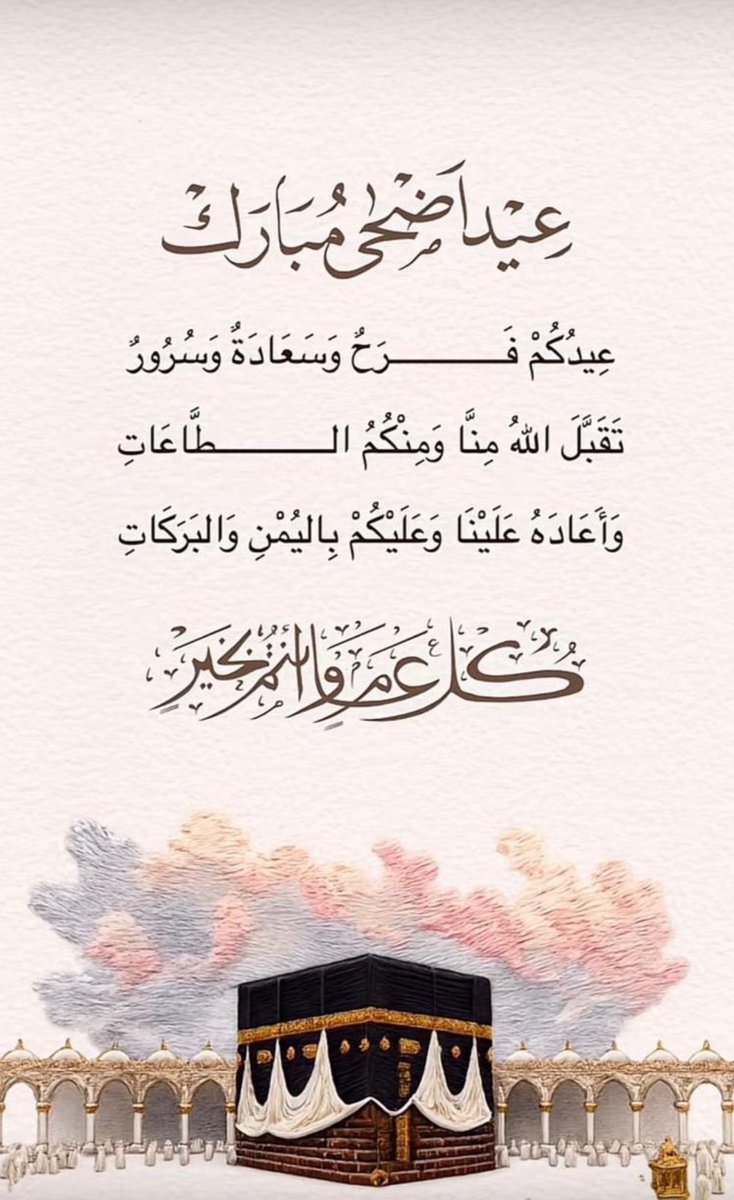 عِيْد اَضْحَى مُبَارَكْ
عِيدُكُمْ فَـــــــرَحٌ وَسَعَادَةٌ وَسُرُورٌ
تَقَبَّلَ اللهُ مِنَّا وَمِنْكُمُ الـــــــطَّاعَاتِ
وَأَعَادَهُ عَلَيْنَا وَعَلَيْكُمْ بِاليُمْنِ وَالبَرَكَاتِ
كُلُ عَامٍ وَأَنْتُمْ بِخَيْرٍ